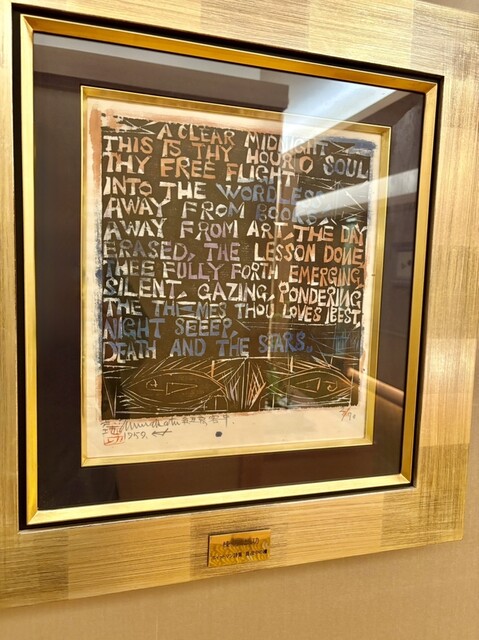 A CLEAR MIDNIGHT
THIS IS THY HOUR O SOUL
THY FREE FLIGHT
INTO THE WORDLESS
AWAY FROM BOOKS,
AWAY FROM ART, THE DAY
ERASED, THE LESSON DONE,
THEE FULLY FORTH EMERGING,
SILENT, GAZING, PONDERING
THE THEMES THOU LOVES BEST,
NIGHT SEEEP,
DEATH AND THE STARS.
1959